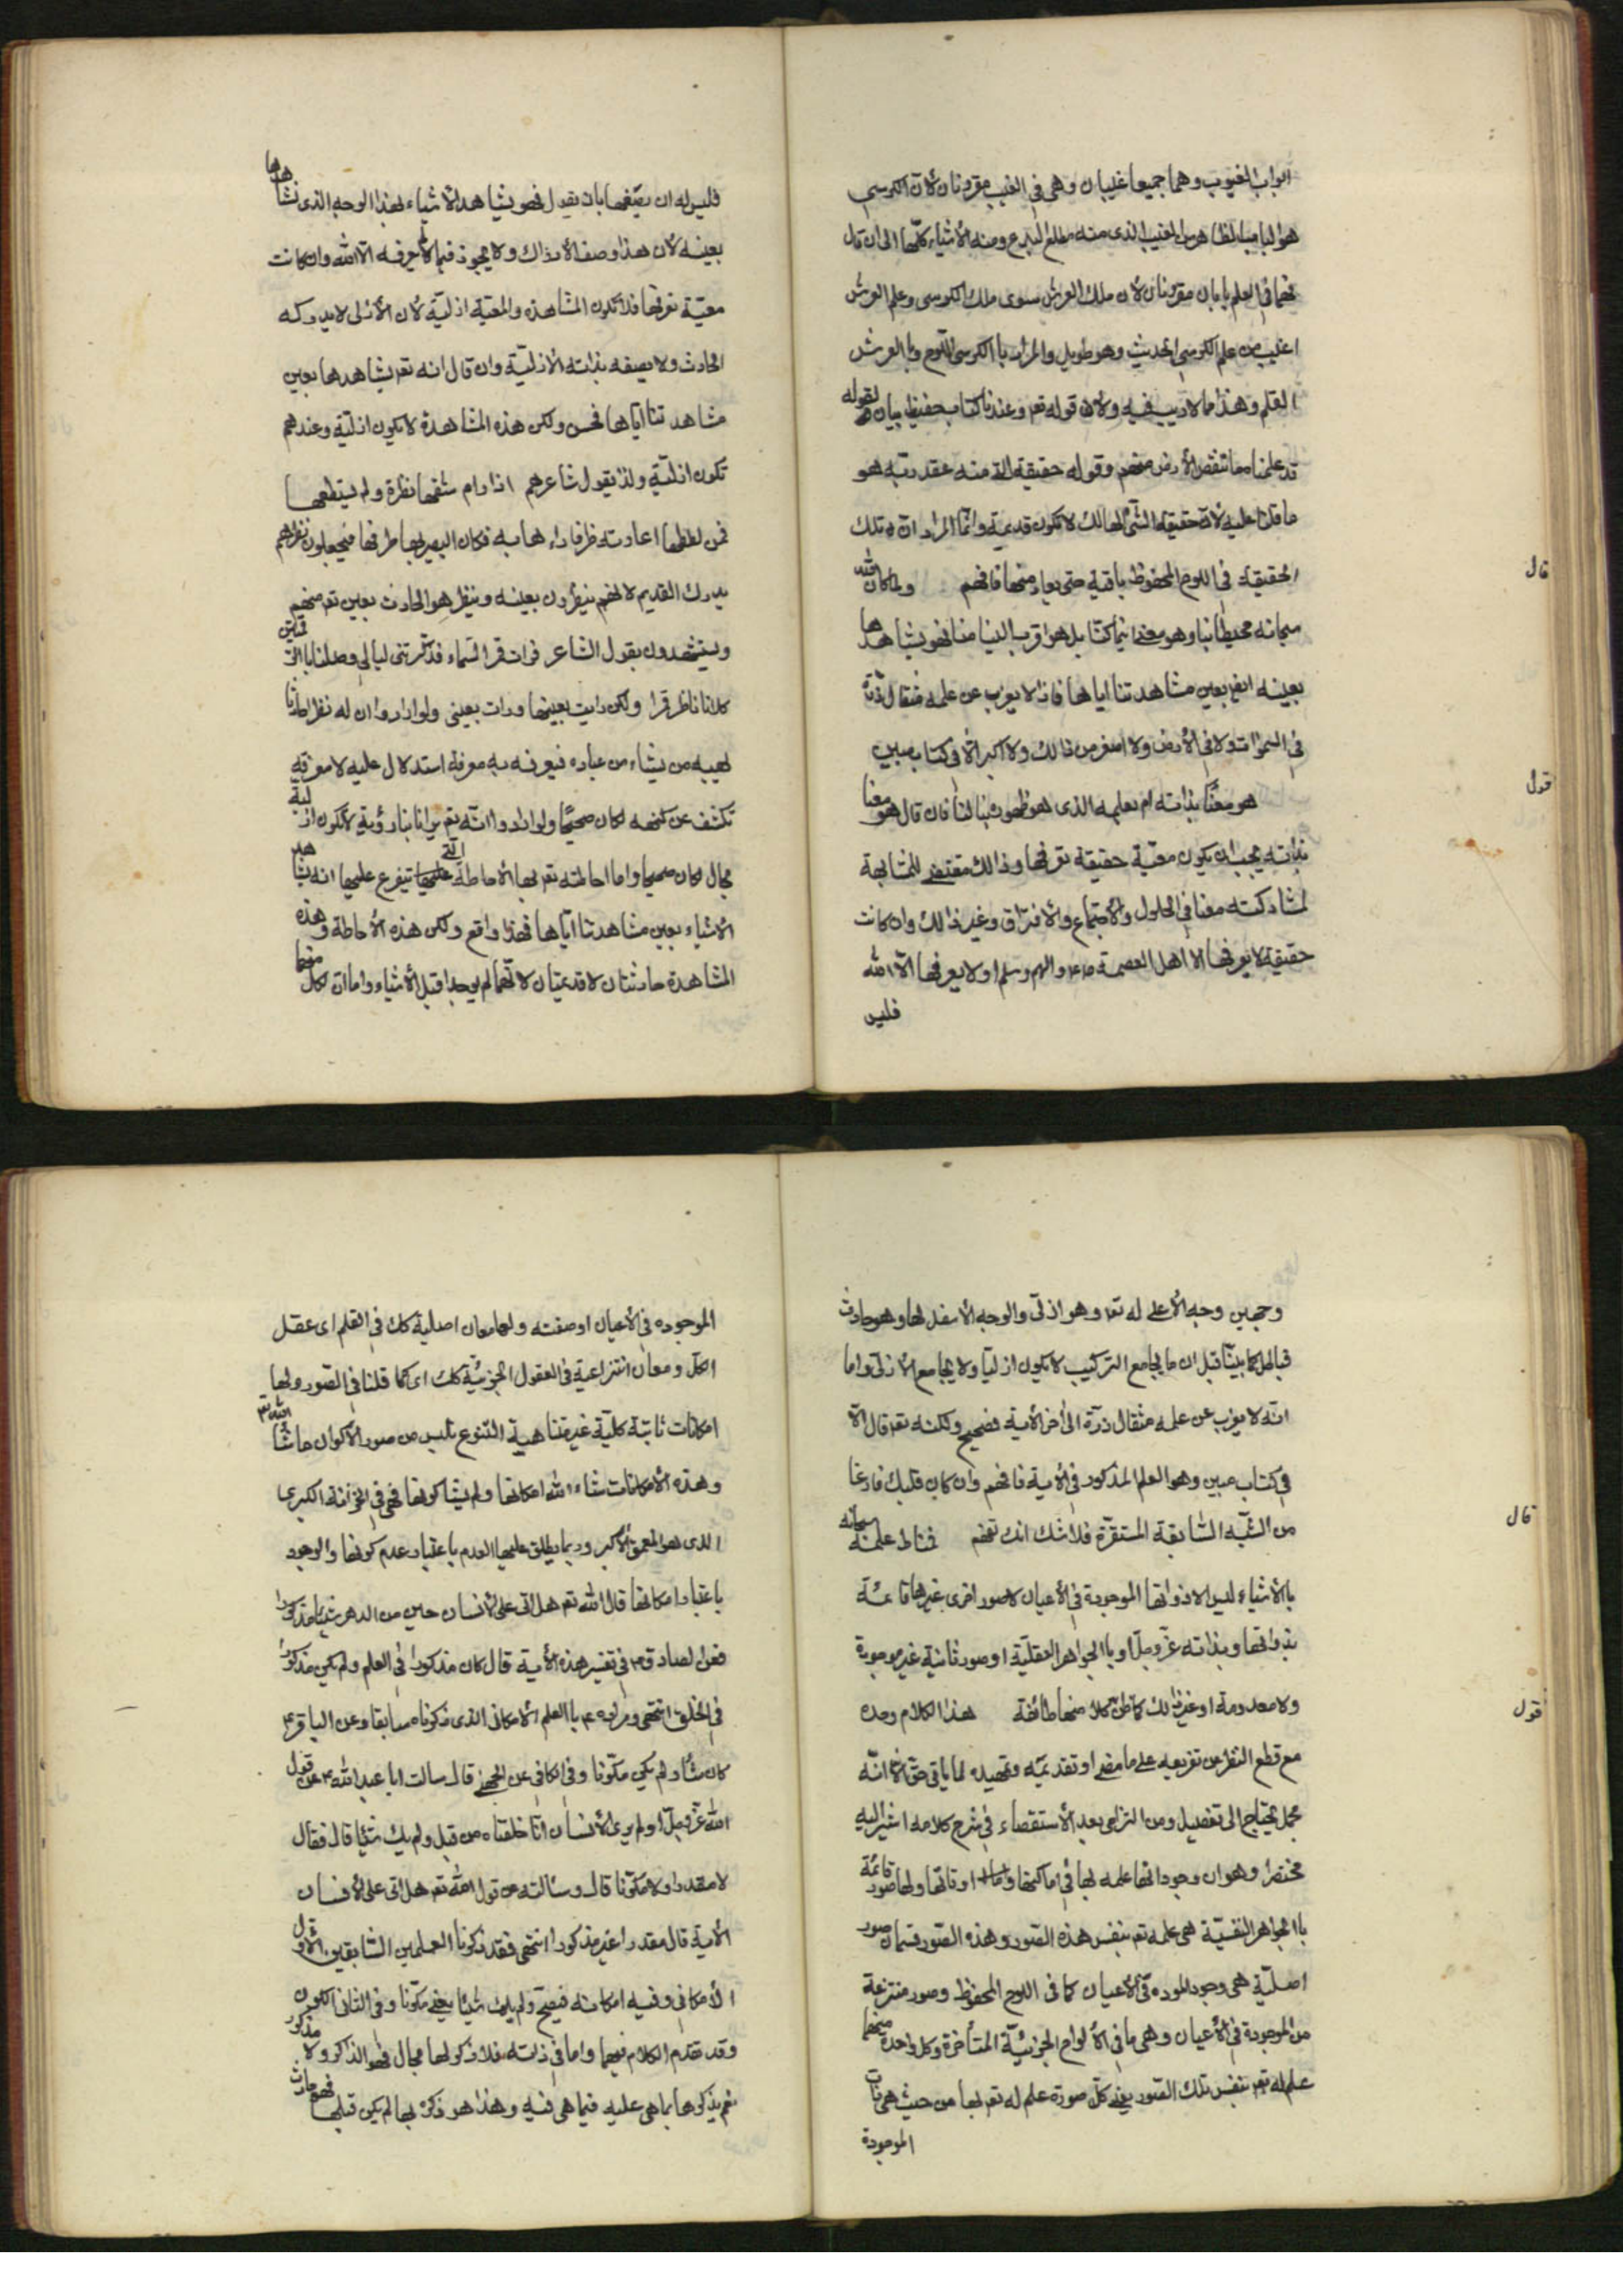 ابواب الغيوب وهما جميعا غليبان وهي في الغيب مقرونان لأن الكرسي
هو الباب الظاهر من الغيب الذي منه مطلع البدع ومنه الأشياء كلّها الى ان قال
فهما في العلم بابان مقرونان لان ملك العرش سوى ملك الكرسي وعلم العرش
اغيب من علم الكرسي الحديث وهو طويل والمراد باالكرسي اللّوح وباالعرش
القلم وهذا مما لا ريب فيه ولأن قوله تع وعندنا كتاب حفيظ بيان لقوله
قد علمنا ما تنقص الأرض منهم وقوله حقيقة منه عند ربّه هو
ما قلنا عليه لأن حقيقة الشئ الهالك لا تكون قديمة وانّما المراد ان تلك
الحقيقة في اللوح المحفوظ باقية حتى يعاد منها فافهم ولما كان الله
قال
سبحانه محيطا بنا وهو معنا اينما كنّا بل هو اقرب الينا منا فهو يشاهدها
بعينه ايض بعين مشاهدتنا اياها فاذا لا يعزب عن علمه مثقال ذرّة
في السموات ولا في الأرض ولا اصغر من ذالك ولا اكبر الّا في كتاب مبين
قول
هو معنا بذاته ام بعلمه الذي هو ظهوره بنا لنا فان قال هو معنا
بذاته يجب ان يكون معيّة حقيقة نعرفها وذالك مقتض للمشابهة
لمشاركته معنا في الحلول والأجتماع والأفتراق وغير ذالك وان كانت
حقيقة لا يعرفها الا اهل العصمة ص ع واله وسلم او لا يعرفها الّا الله
فليس
فليس له ان يصفها بان يقول فهو يشاهد الأشياء بهذا الوجه الذي نشاهدها
بعينه لأن هذا وصف الأدراك ولا يجوز فيما لا يعرفه الّا الله وان كانت
معيّة نعرفها فلا تكون المشاهدة والمعيّة ازليّة لأن الأزلى لا يدركه
الحادث ولا يصفه بذاته الأزليّة وان قال انه تع يشاهدها بعين
مشاهدتنا ايّاها فحسن ولكن هذه المشاهدة لا تكون ازليّة وعندهم
تكون ازليّة ولذا يقول شاعرهم اذا رام عاشقها نظرة ولم يستطعها
فمن لطفها اعارته طرفا رءاها به فكان البصير بها طرفها فيجعلون نظرهم
يدرك القديم لانهم ينظرون بعينه وينظر هو الحادث بعين تع منهم
ويستشهدون بقول الشاعر فرات قمر السّماء فذكّرتنى ليالي وصلنا باالرّقمتين
كلانا ناظر قمرا ولكن رايت بعينها ورات بعيني ولو ارادوا ان له نظرا حادثا
يهبه من يشاء من عباده فيعرفه به معرفة استدلال عليه لا معرفة
تكشف عن كنهه لكان صحيحا ولو ارادوا انّه تع يرانا بنا رؤية لا تكون ازلية
بحال لكان صحيحا واما احاطته تع بها الأحاطة الّتي تتفرع عليها انه يشاهد
الأشياء بعين مشاهدتنا ايّاها فهذا واقع ولكن هذه الأحاطة وهذه
المشاهدة حادثتان لا قديمتان لانّهما لم يوجدا قبل الأشياء واما ان لكل منهما
وجهين وجه الأعلى له تع وهو ازلّى والوجه الأسفل لها وهو حادث
فباطل كما بيّنا قبل ان ما يجامع التركيب لا يكون ازليّا ولا يجامع الأزلّى واما
انّه لا يعزب عن علمه مثقال ذرّة الى آخر الأية فصحيح ولكنه تع قال الّا
في كتاب مبين وهو العلم المذكور في الأية فافهم وان كان قلبك فارغا
من الشّبه السّابقة المستقرّة فلا شك انك تفهم فمناط علمه سبحانه
قال
باالأشياء ليس الا ذواتها الموجودة في الأعيان لا صور اخرى غيرها قائمة
بذواتها وبذاته عزّ وجلّ او باالجواهر العقليّة او صور ثانية غير موجودة
ولا معدومة او غير ذالك كما ظنّ كلّا منها طائفة هذا الكلام وحده
قول
مع قطع النظر عن تفريعه على ما مضى او تقدّمه وتمهيده لما ياتي حق الّا انّه
مجمل يحتاج الى تفصيل ومن التزامى بعد الأستقصاء في شرح كلامه اشير اليه
مختصرا وهو ان وجوداتها علمه بها في اماكنها واوقاتها ولها صور قائمة
باالجواهر النفسيّة هي علمه تع بنفس هذه الصّور وهذه الصّور قسمان صور
اصليّة هي وجود الموده في الأعيان كما في اللوح المحفوظ وصور منتزعة
من الموجودة في الأعيان وهي ما في الألواح الجزئيّة المتأخرة وكل واحدة منهما
علم له تع بنفس تلك الصّور يعني كلّ صورة علم له تع بها من حيث هي ذات
الموجودة
الموجوده في الأعيان او صفته ولها معان اصلية كك في القلم اى عقل
الكلّ ومعان انتزاعية في العقول الجزئيّة كلك اى كما قلنا في الصّور ولها
امكانات ثابتة كلّية غير متناهية التّنوع تلبس من صور الأكوان ما شاء الله
وهذه الأمكانات شاء الله امكانها ولم يشا كونها فهي في الخزانة الكبرى
الذي هو العمق الأكبر وربما يطلق عليها العدم باعتبار عدم كونها والوجود
باعتبار امكانها قال الله تع هل اتى على الأنسان حين من الدهر لم يكن شيئا مذكورا
فعن الصادق ع في تفسير هذه الأية قال كان مذكورا في العلم ولم يكن مذكورا
في الخلق انتهى ومراده ع باالعلم الأمكانى الذي ذكرناه سابقا وعن الباقر ع
كان شيئا ولم يكن مكوّنا وفي الكافي عن الجهنى قال سالت ابا عبد الله ع عن قول
الله عزّ وجلّ او لم يرى الأنسان انّا خلقناه من قبل ولم يك شيئا قال فقال
لا مقدرا ولا مكوّنا قال وسألته عن قول الله تع هل اتى على الأنسان
الأية قال مقدرا غير مذكورا انتهى فقد ذكرنا العلمين السّابقين الأول
الأمكانى وفيه امكانه فيصحّ ولم يك شيئا يعني مكوّنا وفي الثانى الكون
وقد تقدّم الكلام فيهما واما في ذاته فلا ذكر لها بحال فهو الذاكر ولا مذكور
نعم يذكرها بما هي عليه فيما هي فيه وهذا هو ذكره لها لم يكن قبلها فهو حادث